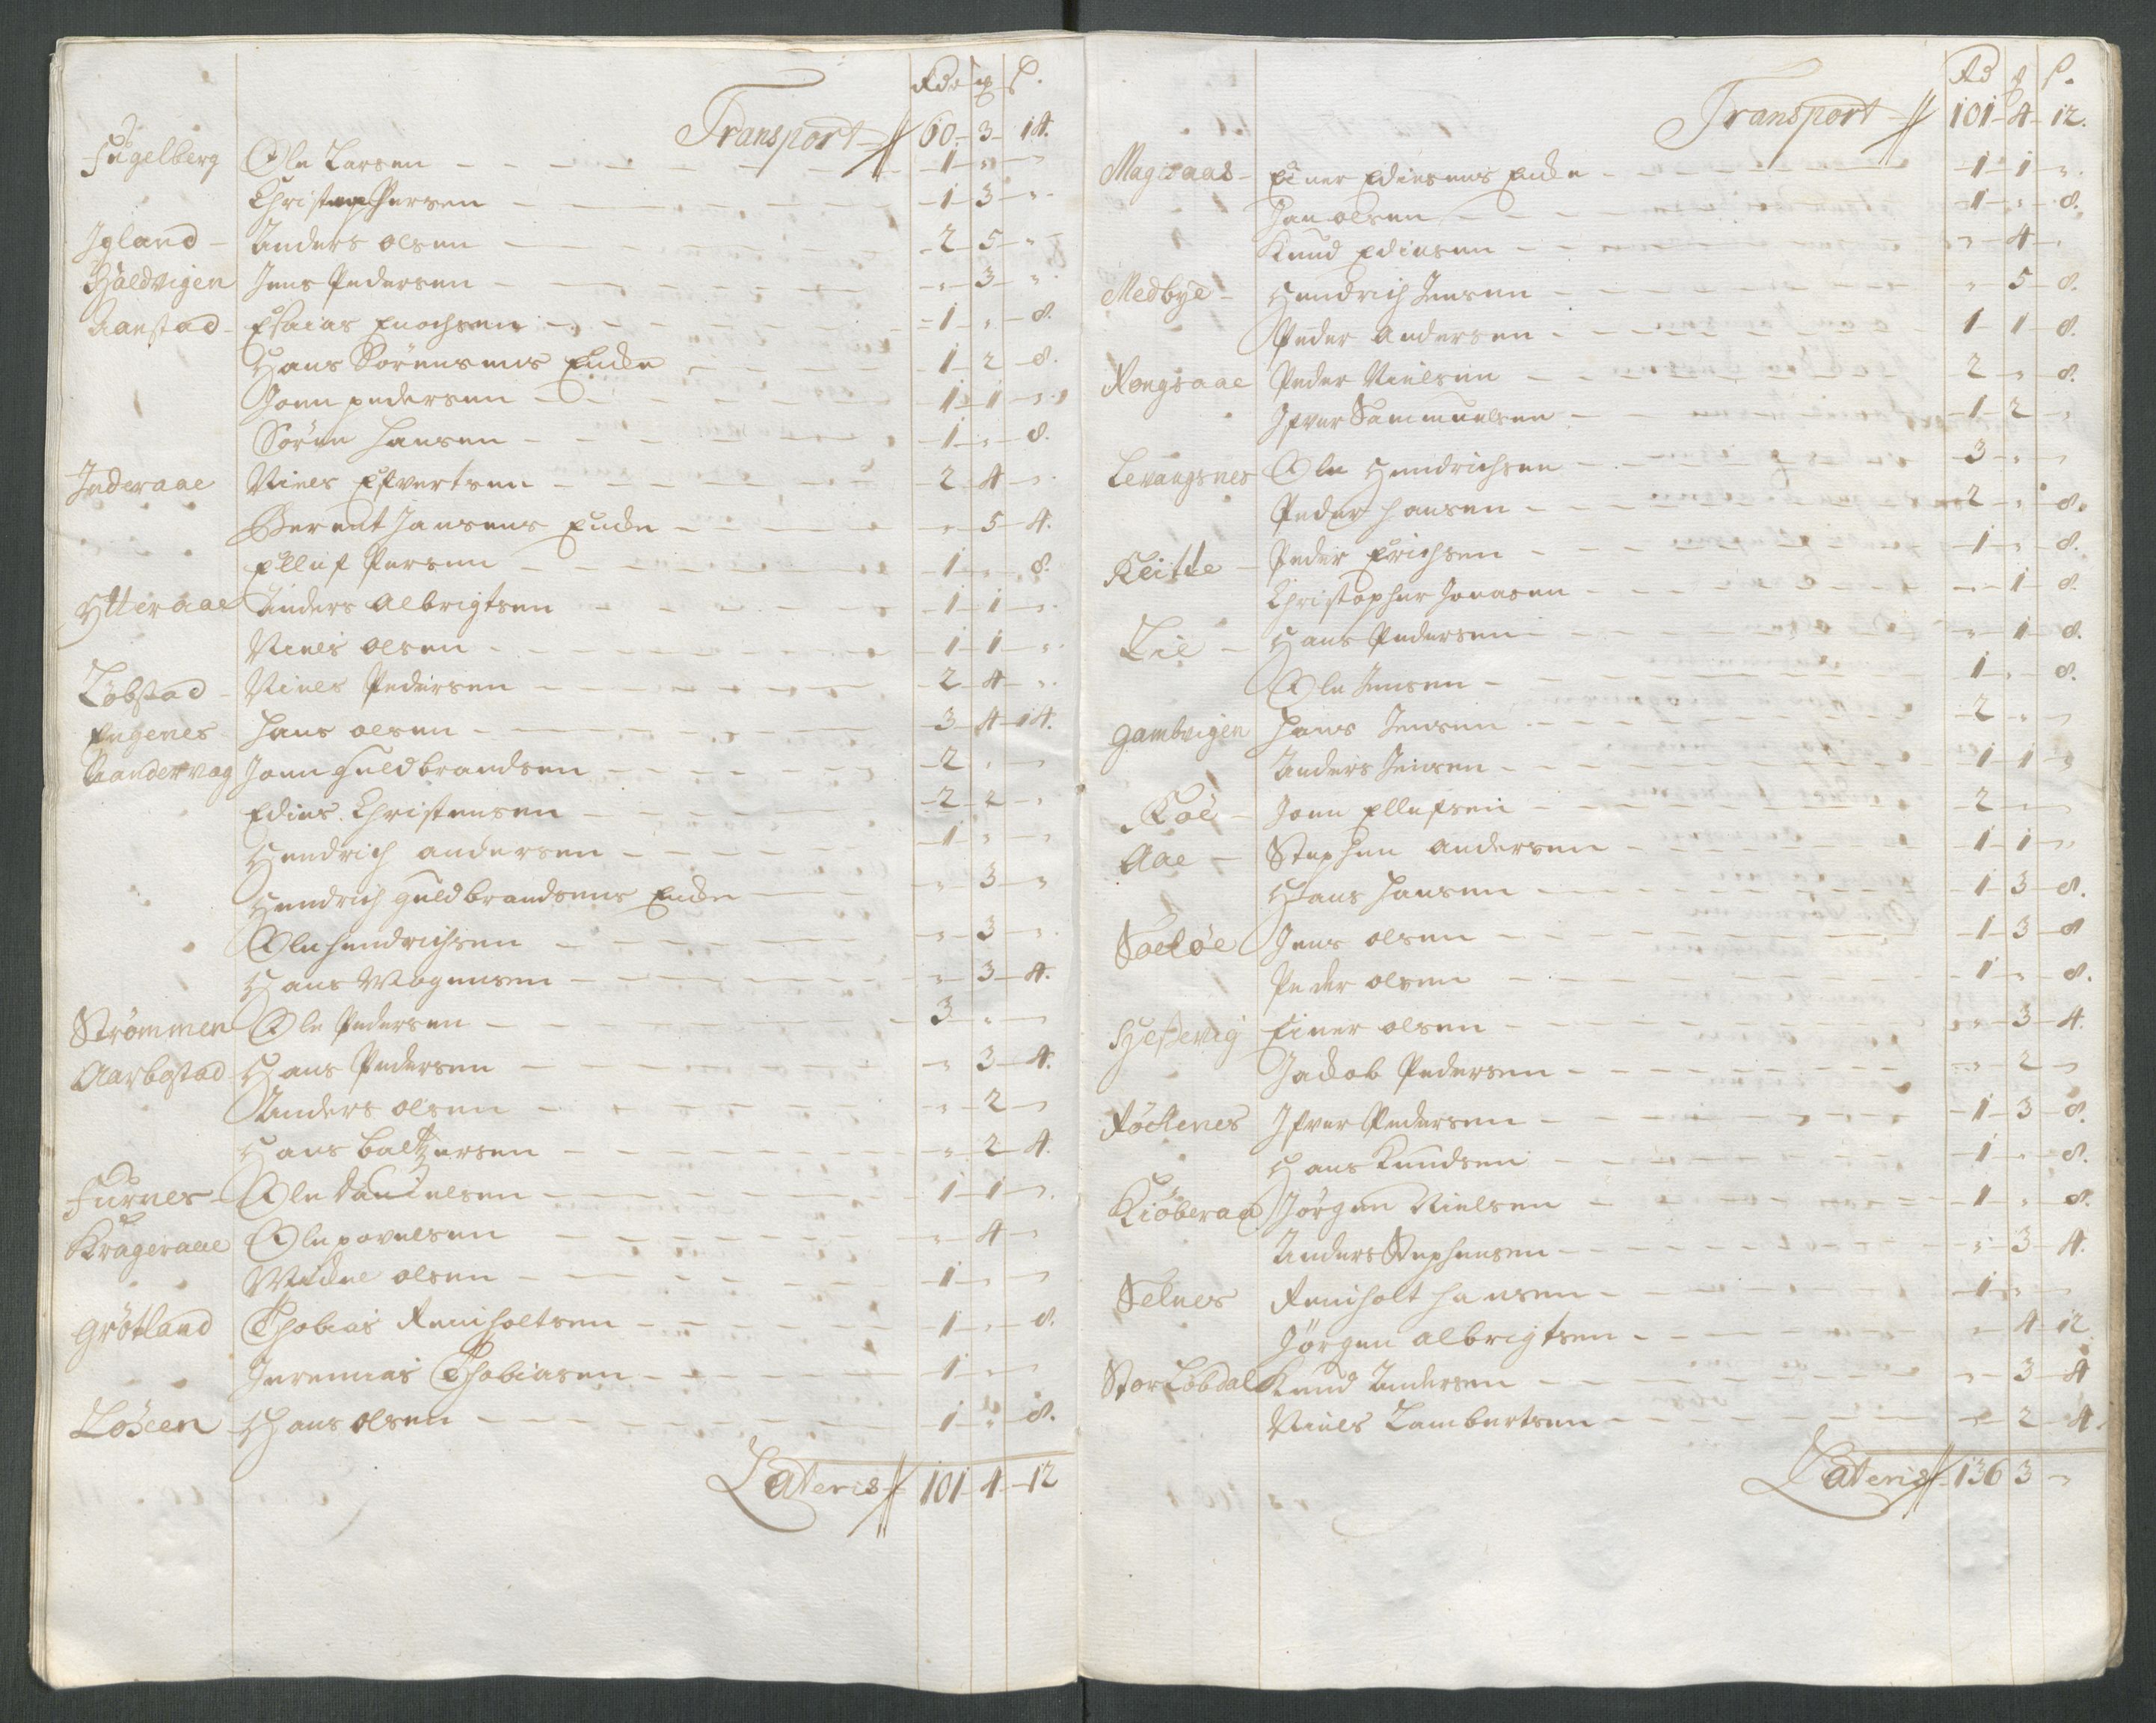 Rdr # ß.
Transport 60. 3 14.
Fugelberg Ole Larsen 1 " "
Christopher Persen 1 3 "
Igland Anders Olsen 2 5 "
Haldvigen Jens Pedersen " 3 "
Aanstad Esaias Enochsen 1 " 8.
Hans Sörensens Encke 1 2 8.
Joen pedersen 1 1 "
Sören Hansen 1 " 8.
Inderaae Niels Efvertsen 2 4 "
Berent Jansens Encke " 5 4.
Elluf Persen 1 " 8.
Ytteraae Anders Albrigtsen 1 1 "
Niels Olsen 1 1 "
Löbstad Niels Pedersen 2 4 "
Engenes Hans Olsen 3 4 14.
Aandervag Joen Guldbrandsen 2 " "
Edies Christensen 2 2 "
Hendrich andersen 1 " "
Hendrich guldbrandsens Encke " 3 "
Ole Hendrichsen " 3 "
Hans Mogensen " 3 4.
Strömmen Ole Pedersen 3 " "
Aarbostad Hans Pedersen " 3 4.
Anders Olsen " 2 "
Hans baltzersen " 2 4.
Furnes Ole Danielsen 1 1 "
Krageraae Ole povelsen " 4 "
Mickel Olsen 1 " "
Grötland Thobias Reinholtsen 1 " 8.
Jeremias Thobiasen 1 " "
Löseen Hans Olsen 1 " 8.
Lateris 101 4 12
Rd # ß.
Transport 101 4 12.
Magesaas Einer Ediesens Encke 1 1 "
Jan Olsen 1 " 8.
Knud Ediesen " 4 "
Medbye Hendrich Jensen " 5 8.
Peder Andersen 1 1 8.
Rongsaae Peder Nielsen 2 " 8.
Ifver Sammuelsen 1 2 "
Levangsnes Ole Hendrichsen 3 " "
Peder hansen 2 " 8.
Kleitte Peder Erichsen 1 " 8.
Christopher Jonasen " 1 8.
Lie Hans Pedersen " 1 8.
Ole Jensen 1 " 8.
Gambvigen Hans Jensen 2 " "
Anders Jensen 1 1 "
Köe Joen Ellufsen 2 " "
Aae Stephen Andersen 1 1 "
Hans Hansen 1 3 8.
Jens Olsen 1 3 8
Peder Olsen 1 " 8.
Hessevig Einer Olsen " 3 4.
Jackob Pedersen " 2 "
Röckenes Ifver Pedersen 1 3 8.
Hans Knudsen 1 " 8.
Kiöberaa Jörgen Nielsen 1 " 8.
Anders Stephensen " 3 4.
Selnes Reinholt Hansen 1 " "
Jörgen Albrigtsen " 4 12
Stor Löbdal Knud Andersen " 3 4
Niels Lambertsen " 2 4.
Lateris 136 3 "